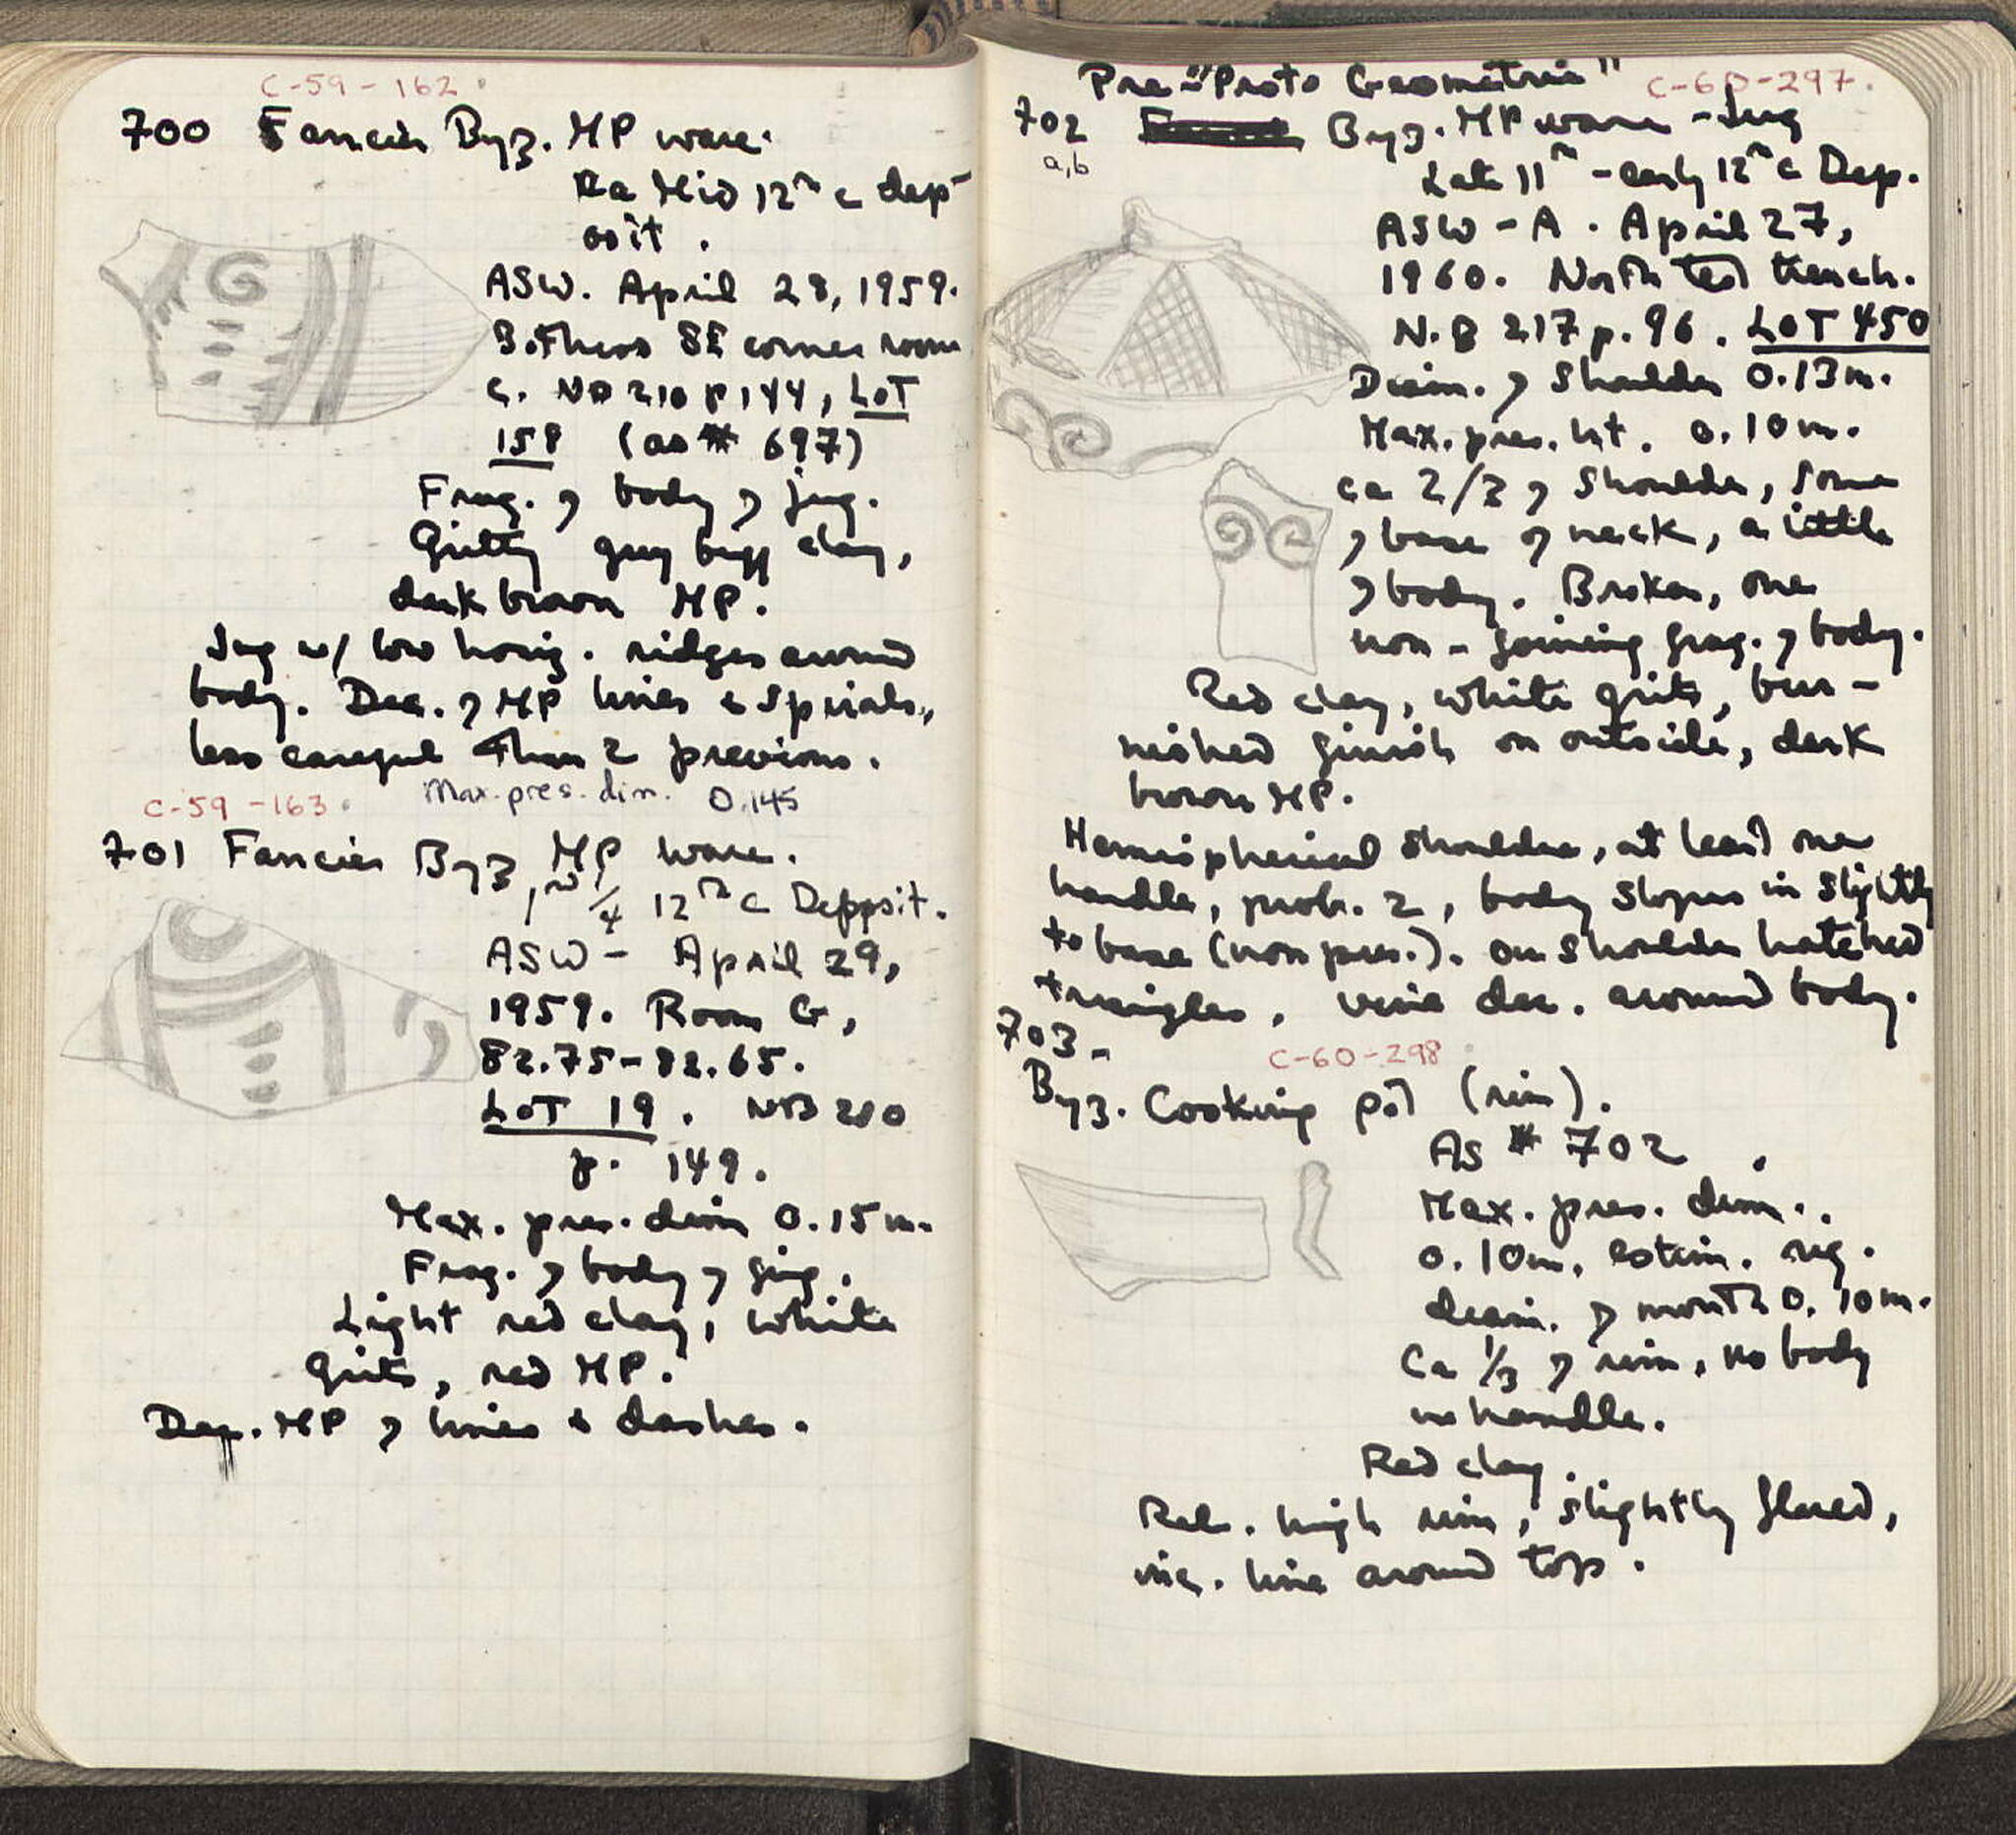 C-59-162.
700 Fancier Byz. MP ware.
Ca Mid 12th c dep-
osit.
ASW. April 28, 1959.
Bothros SE corner room
C. NB 210 p 144, LOT
158 (as # 697)
Frag. of body of jug.
Gritty grey buff clay,
dark brown MP.
Jug w/ low horiz. ridges around
body. Dec. of MP lines & spirals,
less careful than 2 previous.
C-59-163. Max. pres. dim. 0.145
701 Fancier Byz MP ware.
12th c Deposit.
ASW - April 29,
1959. Room G,
82.75-82.65.
LOT 19. NB 210
p. 149.
Max. pres. dim 0.15 m.
Frag. of body of jug.
Light red clay, white
grits, red MP.
Dec. MP of lines & dashes.
Pre-"Proto Geometric" C-60-297.
702 Byz. MP ware - Jug
a,b
Late 11th - early 12th c Dep.
ASW - A. April 27,
1960. North test trench.
N.B 217 p. 96. LOT 450
Diam. of shoulder 0.13 m.
Max. pres. ht. 0.10 m.
ca 2/3 of shoulder, some
of base of neck, a little
of body. Broken, one
non-joining frag. of body.
Red clay, white grits, bur-
nished finish on outside, dark
brown MP.
Hemispherical shoulder, at least one
handle, prob. 2, body slopes in slightly
to base (non pres.). On shoulder hatched
triangles, vine dec. around body.
703 -
C-60-298
Byz. Cooking pot (rim).
As # 702.
Max. pres. dim.
0.10m, estim. rig.
diam. of mouth 0.10m.
Ca 1/3 of rim, no body
no handle.
Red clay.
Rel. high rim, slightly flared,
inc. line around top.